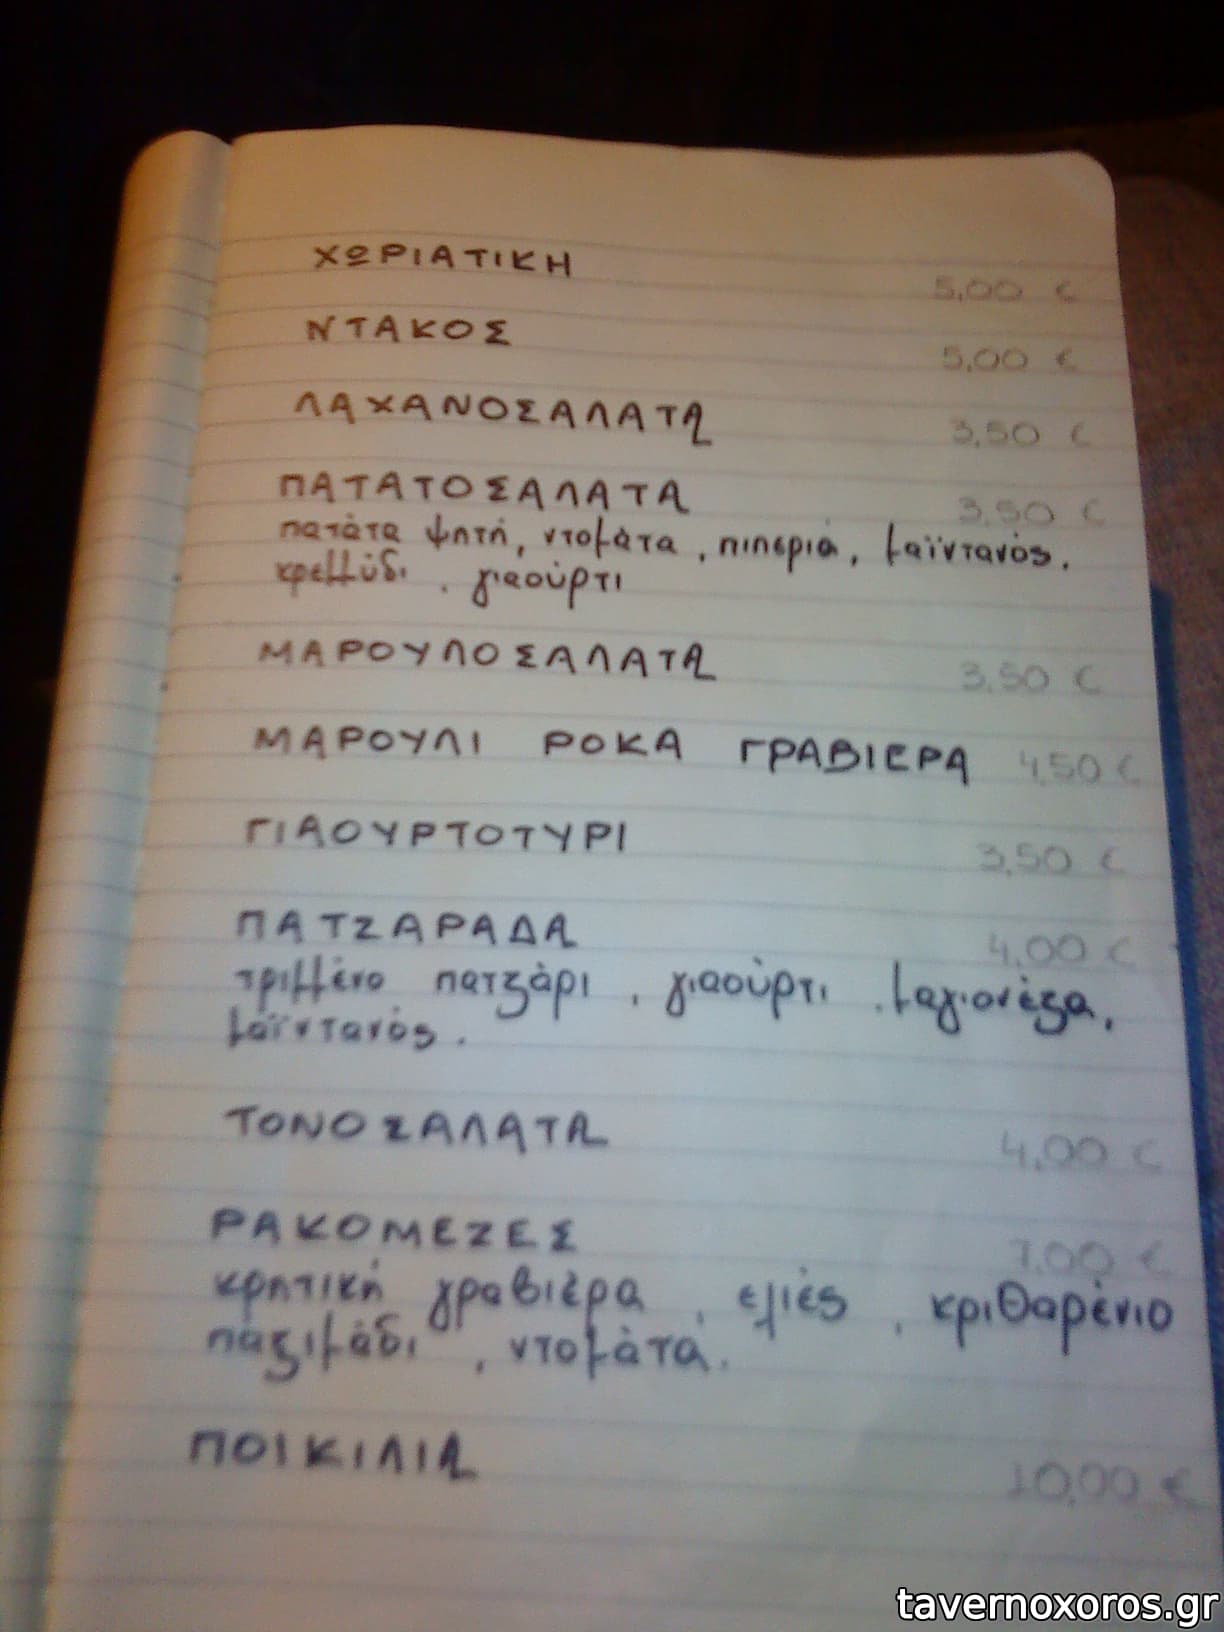 ΧΩΡΙΑΤΙΚΗ 5,00 €
ΝΤΑΚΟΣ 5,00 €
ΛΑΧΑΝΟΣΑΛΑΤΑ 3,50 €
ΠΑΤΑΤΟΣΑΛΑΤΑ 3,50 €
πατάτα ψητή, ντομάτα, πιπεριά, μαϊντανός.
κρεμμύδι, γιαούρτι
ΜΑΡΟΥΛΟΣΑΛΑΤΑ 3,50 €
ΜΑΡΟΥΛΙ ΡΟΚΑ ΓΡΑΒΙΕΡΑ 4,50 €
ΓΙΑΟΥΡΤΟΤΥΡΙ 3,50 €
ΠΑΤΖΑΡΑΔΑ 4,00 €
τριμμένο πατζάρι, γιαούρτι, μαγιονέζα,
μαϊντανός.
ΤΟΝΟΣΑΛΑΤΑ 4,00 €
ΡΑΚΟΜΕΖΕΣ 7,00 €
κρητική γραβιέρα, ελιές, κριθαρένιο
παξιμάδι, ντομάτα.
ΠΟΙΚΙΛΙΑ 10,00 €
tavernoxoros.gr